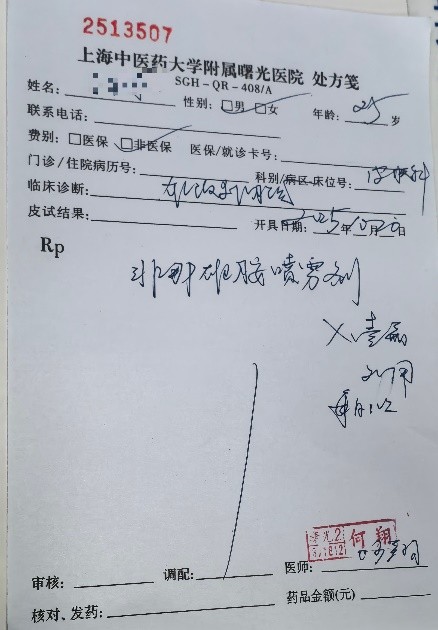 2513507
上海中医药大学附属曙光医院 处方笺
SGH-QR-408/A
姓名: 性别: □男 □女 年龄: 25 岁
联系电话:
费别: □医保 □非医保 医保/就诊卡号:
门诊/住院病历号: 科别/病区 床位号: 皮肤科
临床诊断: 雄激素性脱发
皮试结果: 开具日期: 2025年 月 日
Rp
非那雄胺喷雾剂
X 壹瓶
外用
每日1次
何翔
审核: 调配: 医师:
核对、发药: 药品金额(元)